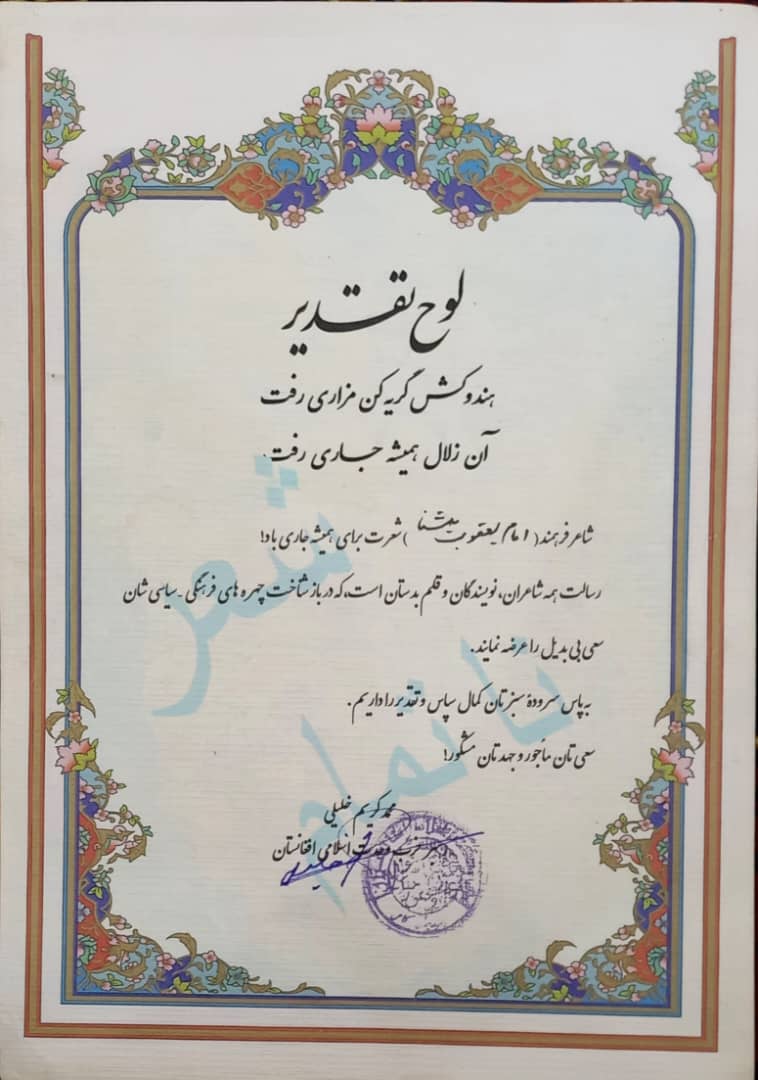 لوح تقدیر
هندوکش گریه کن مزاری رفت
آن زلال همیشه جاری رفت
شاعر فرهمند (امام یعقوب یشنا) شعرت برای همیشه جاری باد!
رسالت همه شاعران، نویسندگان و قلم بدستان است، که در باز شناخت چهره های فرهنگی - سیاسی شان
سعی بی بدیل را عرضه نمایند.
به پاس سرودۀ سبز تان کمال سپاس و تقدیر را داریم.
سعی تان مأجور و جهد تان مشکور!
محمد کریم خلیلی
رهبر حزب وحدت اسلامی افغانستان
شعر
ناتمام